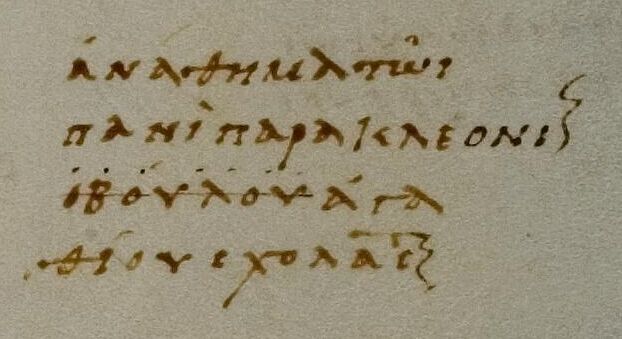 ἀνάθημα τῶι
πανὶ παρὰ κλεονι
ιβούλου ἀγα
θίου σχολασ